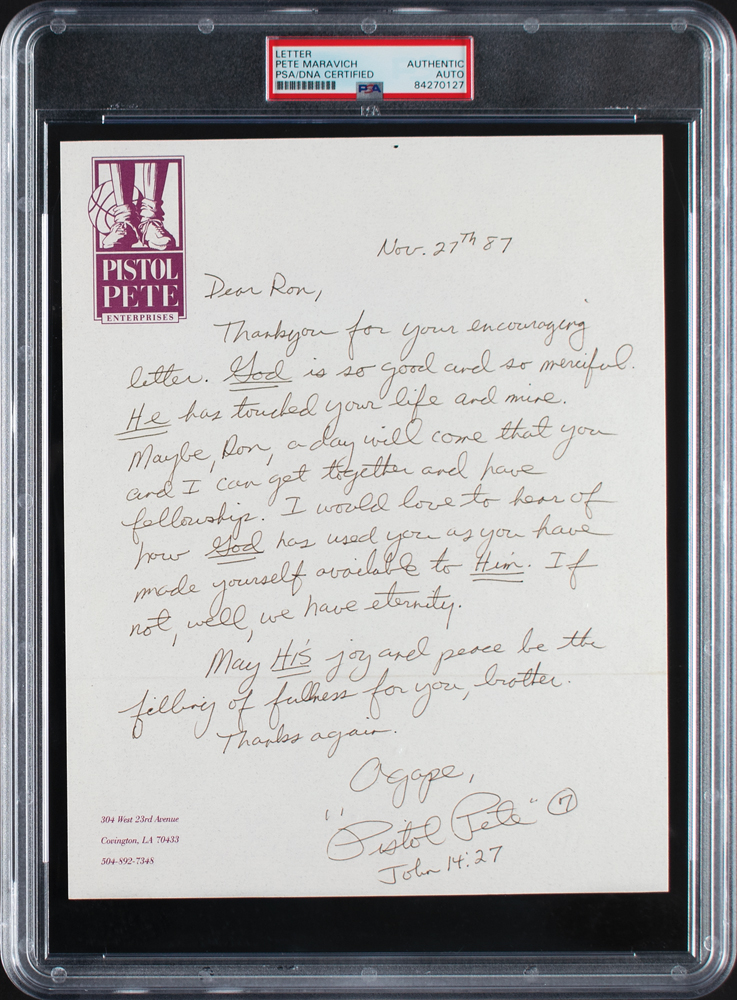 LETTER
PETE MARAVICH
PSA/DNA CERTIFIED
AUTHENTIC
AUTO
84270127
PSA
PISTOL
PETE
ENTERPRISES
Nov. 27th 87
Dear Ron,
Thankyou for your encouraging
letter. God is so good and so merciful.
He has touched your life and mine.
Maybe, Ron, a day will come that you
and I can get together and have
fellowship. I would love to hear of
how God has used you as you have
made yourself available to Him. If
not, well, we have eternity.
May HIS joy and peace be the
filling of fullness for you, brother.
Thanks again.
Agape,
"Pistol Pete" 7
John 14:27
304 West 23rd Avenue
Covington, LA 70433
504-892-7348